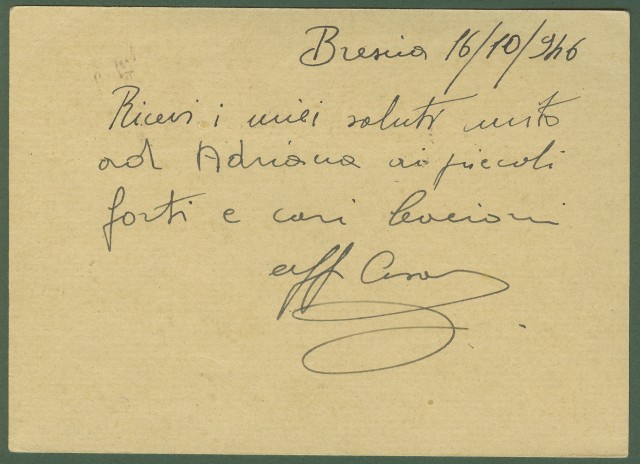 Brescia 16/10/946
Ricevi i miei saluti unito
ad Adriana ai piccoli
forti e cari bacioni
aff